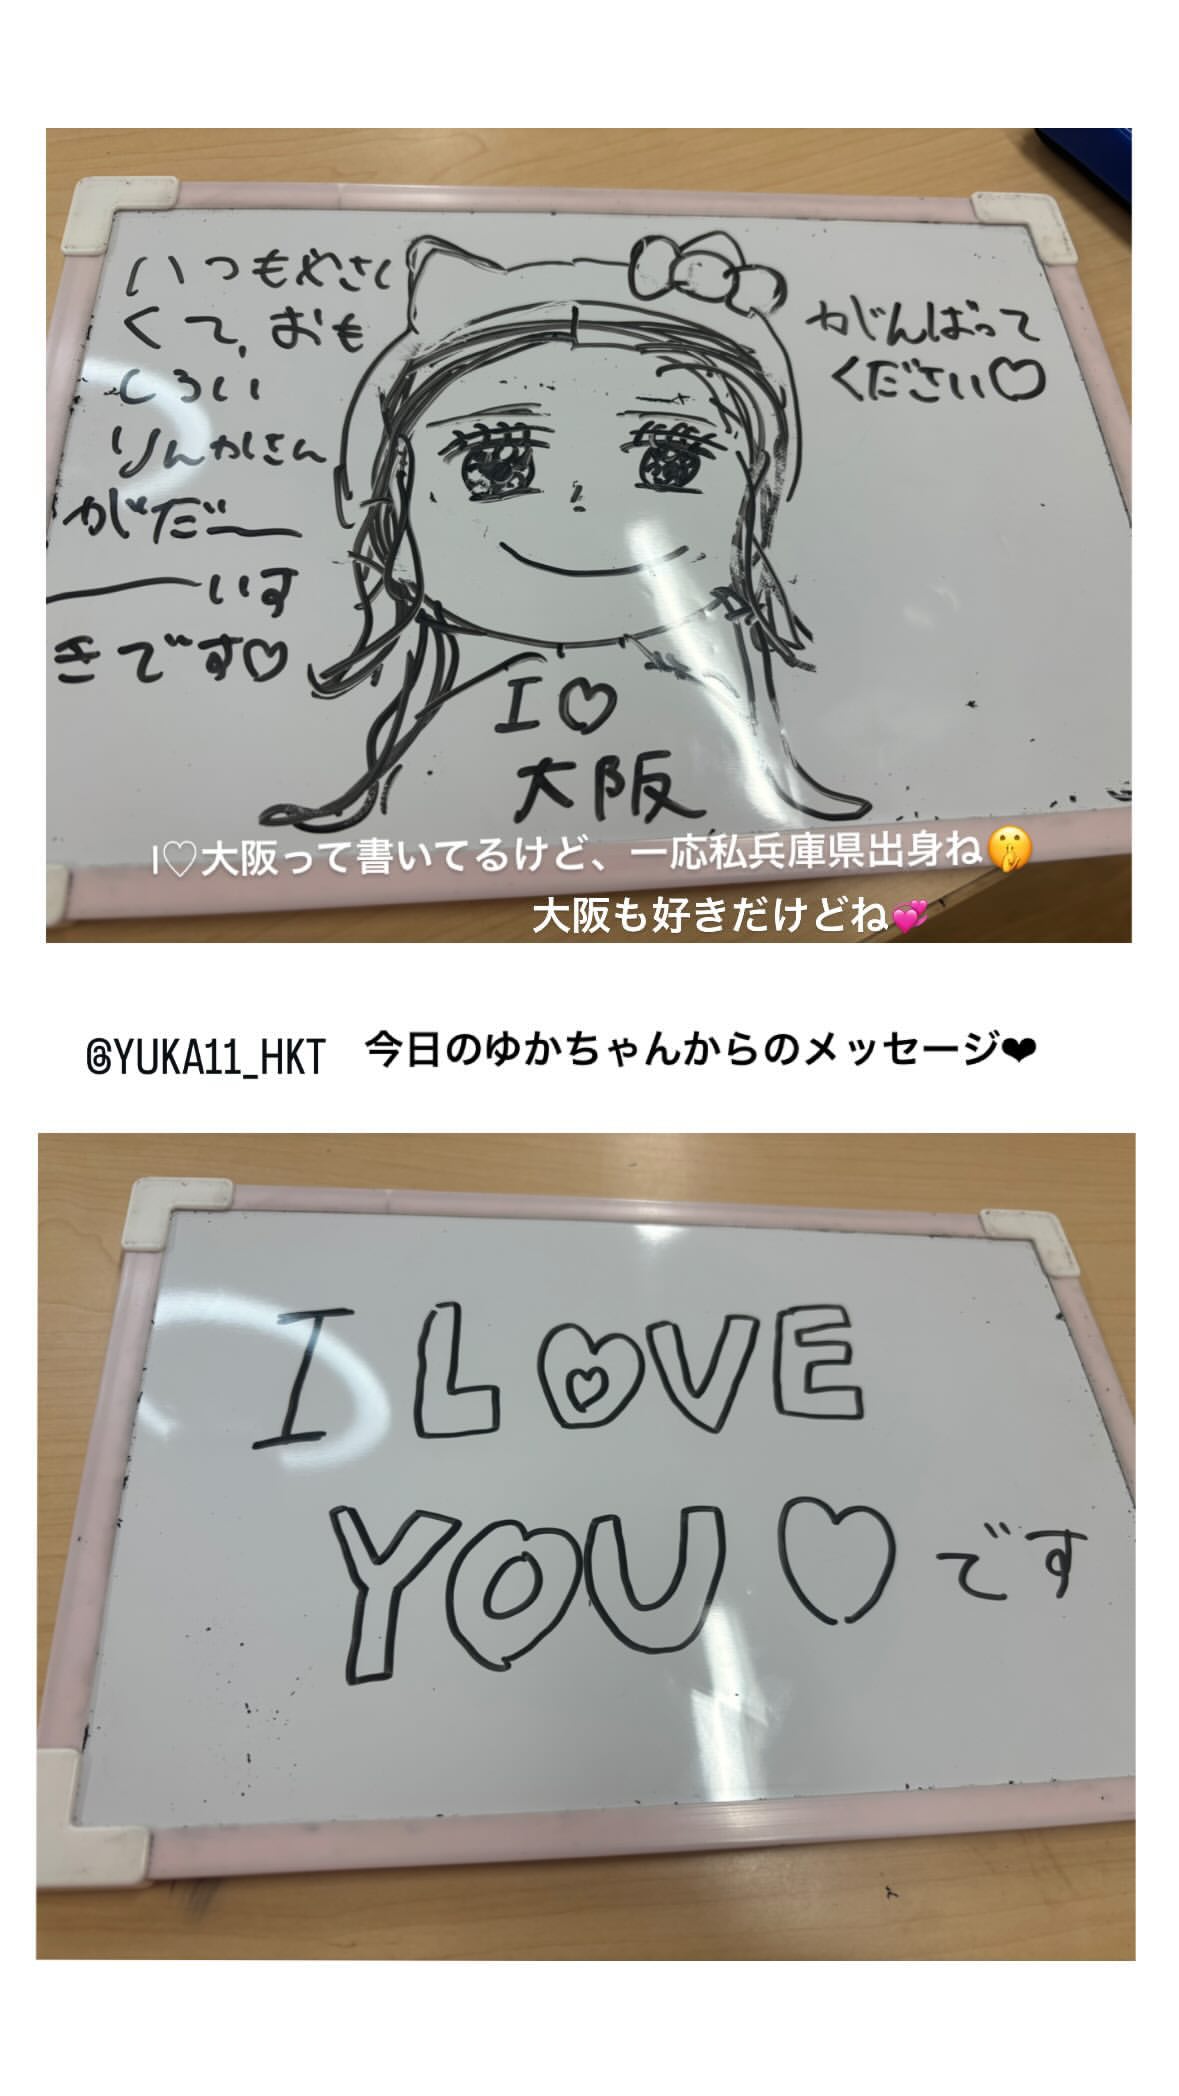 いつもやさし
くて、おも
しろい
りんかさん
がだー
ーいす
きです♡
がんばって
ください♡
I♡
大阪
I♡大阪って書いてるけど、一応私兵庫県出身ね🤫
大阪も好きだけどね💞
@YUKA11_HKT 今日のゆかちゃんからのメッセージ❤
I LOVE
YOU♡です